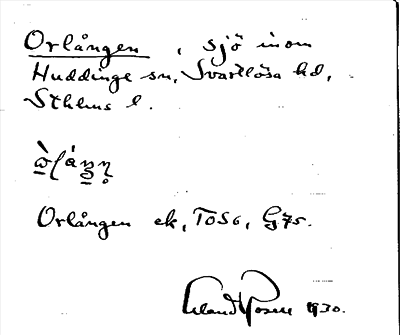 Orlången, sjö inom
Huddinge sn, Svartlösa hd,
Sthlms l.
Orlången ek, TOS6, G75.
Erland Rosell 1930.